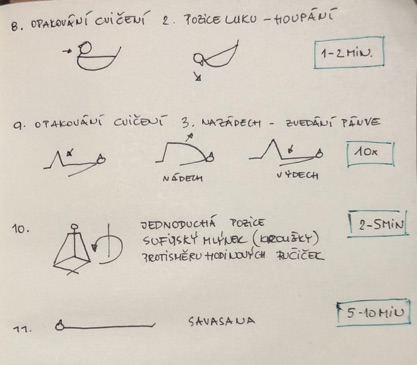 8. OPAKOVÁNÍ CVIČENÍ 2. POZICE LUKU - HOUPÁNÍ
1-2 MIN.
9. OPAKOVÁNÍ CVIČENÍ 3. NAZÁDECH - ZVEDÁNÍ PÁNVE
10x
NÁDECH
VÝDECH
10. JEDNODUCHÁ POZICE
SUFIJSKÝ MLÝNEK (KROUŽKY)
PROTISMĚRU HODINOVÝCH RUČIČEK
2-5MIN
11. SAVASANA
5-10 MIN